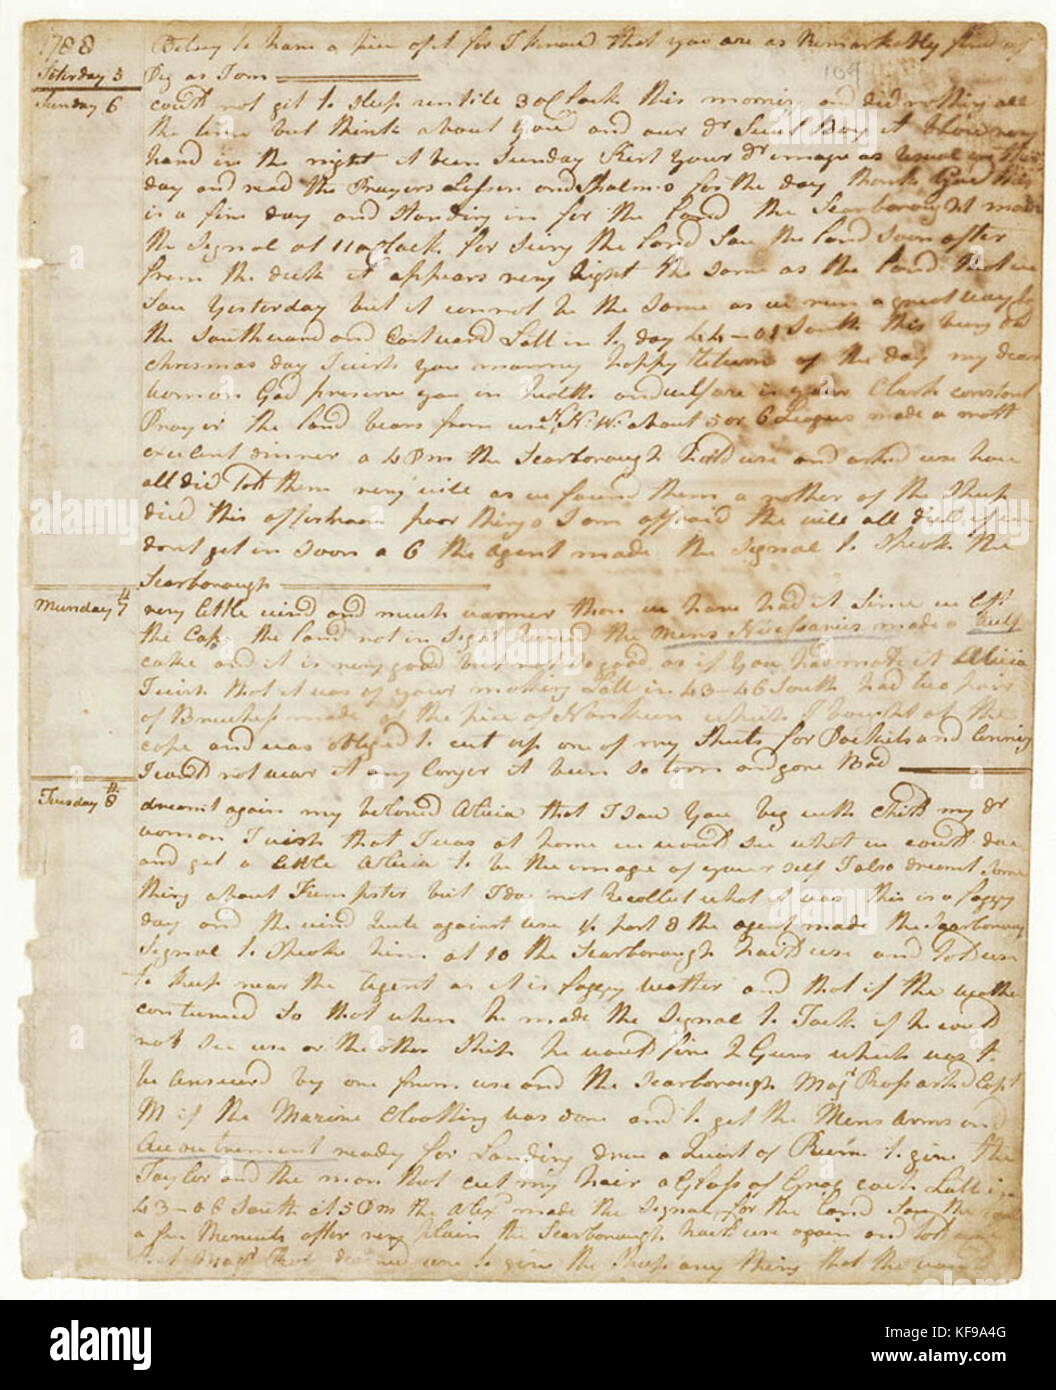 1788
Betsey to have a piece of it for I know that you are as Remarkebly fond of
Saterday 5
Pig as I am
109
Sunday 6
could not get to sleep untile 3 oClock this morning and did nothing all
the time but think about you and our dr Sweet Boy it blow very
hard in the night it been Sunday Kist your dr image as usual on this
day and read the Prayers Lesson and Psalms for the day thank God this
is a fine day and Standing in for the land the Scarborough made
the Signal at 11 oClock for Seing the land Saw the land Soon after
from the deck it appears very hight the Same as the land that we
Saw Yesterday but it cannot be the Same as we run a great way to
the Southward and Eastward Latt in to day 44-01 South this being old
chrismas day I wish you manny happy returns of the day my dear
woman God preserve you in health and wellfare is your Clark constant
Prayer the land bears from use N.N.W. about 5 or 6 Leagues made a most
excelent dinner a 4 Pm the Scarborough haild use and asked use how
all did told them very well as we found them a nother of the Sheep
died this afternoon poor things I am affraid the will all died if we
dont get in Soon a 6 the Agent made the Signal to Speak the
Scarborough
Munday 7th
very little wind and much warmer than we have had it Since we left
the Cape the land not in Sight the Mens Nicessaries made a Curf
cake and it is very good but not So good as if you had made it Alicia
I wish that it was of your making Latt in 43-46 South had two pair
of Breeches made of the piece of Nankeen which I bought at the
cape and was obliged to cut up one of my Sheets for Pockets and Lining
I could not wear it any longer it been So torn and gone Bad
Tuesday 8th
dreamt again my beloved Alicia that I Saw you big with Child my dr
woman I wish that I was at home we would See what we could doe
and get a little Alicia to be the image of your Self I also dreamt Some
thing about Kempster but I doe not Recollect what it was this is a foggy
day and the wind quite against use ½ past 8 the Agent made the Scarborough
Signal to Speake him at 10 the Scarborough haild use and told use
to keep near the Agent as it is foggy wether and that if the wethe
continued So that when he made the Signal to Tack if he could
not See use or the other Ships he would fire 2 Guns which was to
be answerd by one from use and the Scarborough Majr Ross asked Capt
M if the Marine Cloathing was done and to get the Mens arms and
Accoutrement ready for Landing drew a Quart of Rum to give the
Taylor and the man that cut my hair a Glass of Grog each Latt in
43-06 South at 5 Pm the Alex made the Signal for the land Saw the
a few Menuets after very plain the Scarborough haild use again and told
that Majr Ross desired use to give the Sheep any thing that the would
alamy
Image ID: KF9A4G
www.alamy.com